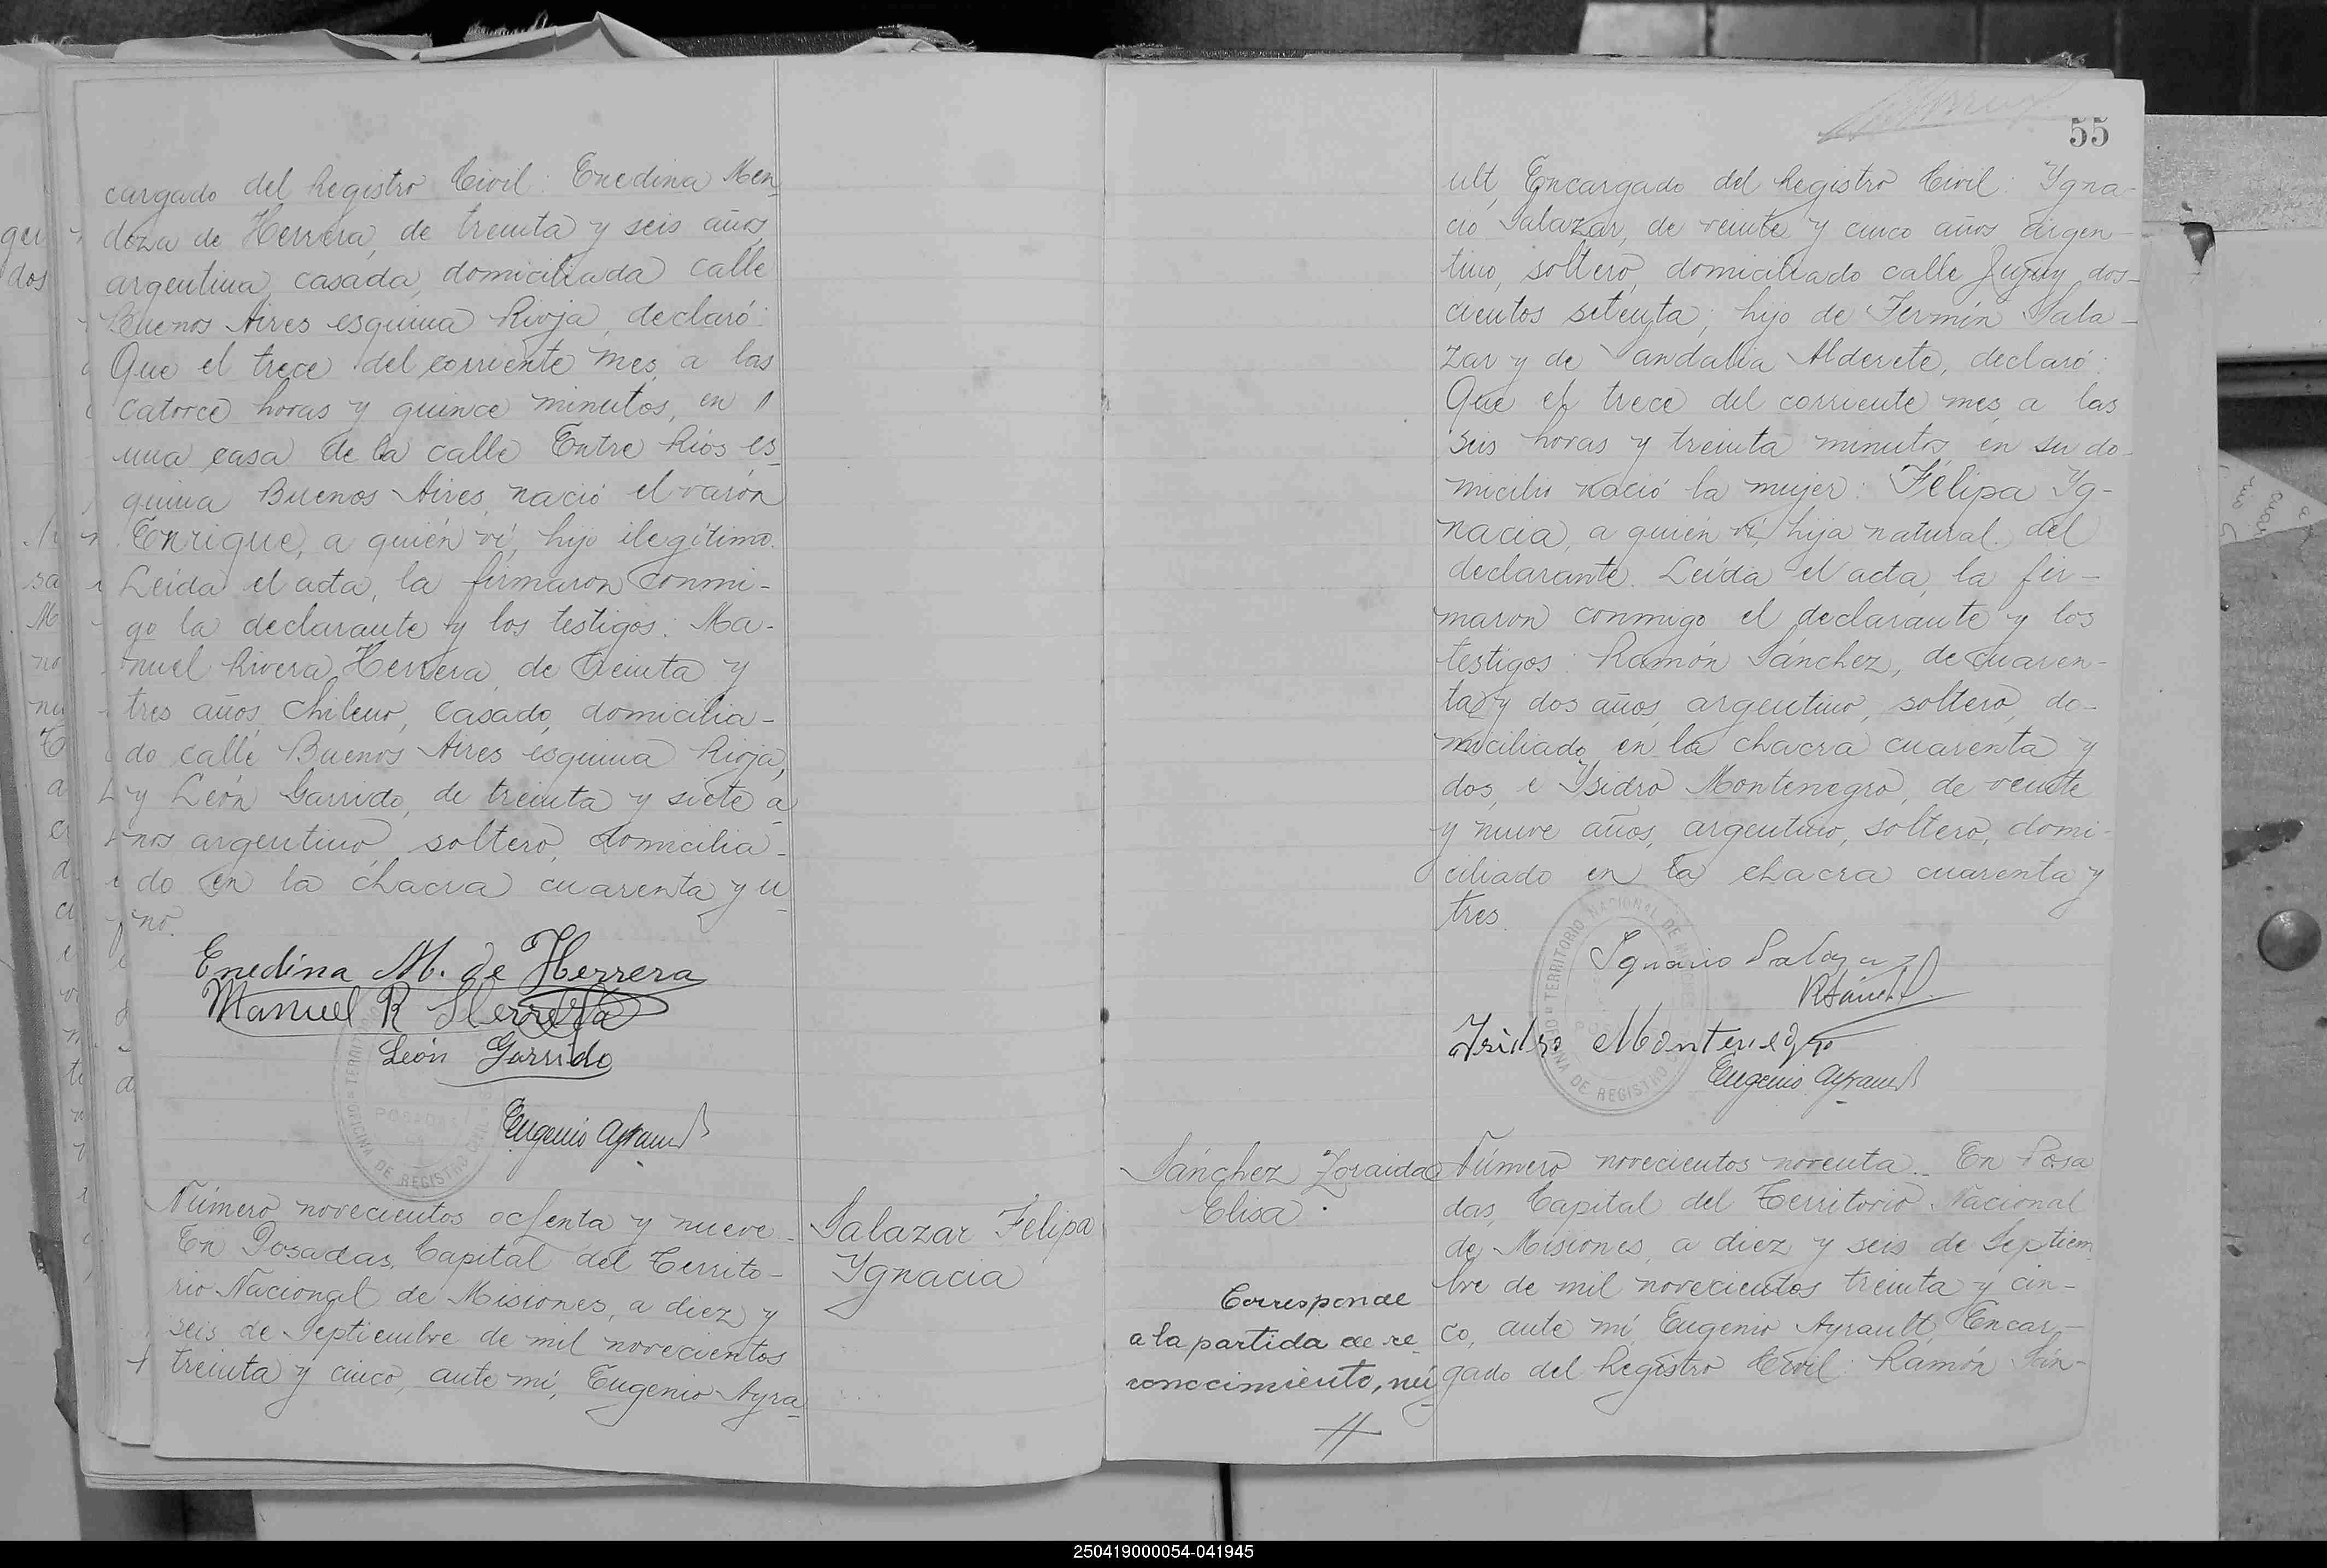 cargado del Registro Civil: Enedina Men-
doza de Herrera, de treinta y seis años
argentina, casada, domiciliada calle
Buenos Aires esquina Rioja, declaró:
Que el trece del corriente mes, a las
catorce horas y quince minutos, en //
una casa de la calle Entre Ríos es-
quina Buenos Aires, nació el varón
Enrique, a quién ví, hijo ilegítimo.
Leída el acta, la firmaron conmi-
go la declarante y los testigos: Ma-
nuel Rivera Herrera, de treinta y
tres años, chileno, casado, domicilia-
do calle Buenos Aires esquina Rioja,
y León Garrido, de treinta y siete a-
ños argentino, soltero, domicilia-
do en la chacra cuarenta y u-
no.
Enedina M. de Herrera
Manuel R Herrera
León Garrido
Eugenio Ayrault
Número novecientos ochenta y nueve.-
En Posadas, Capital del Territo-
rio Nacional de Misiones, a diez y
seis de Septiembre de mil novecientos
treinta y cinco, ante mí, Eugenio Ayra-
Salazar Felipa
Ygnacia
55
ult, Encargado del Registro Civil: Ygna-
cio Salazar, de veinte y cinco años argen-
tino, soltero, domiciliado calle Jujuy dos-
cientos setenta; hijo de Fermín Sala-
zar y de Vandalia Alderete, declaró:
Que el trece del corriente mes, a las
seis horas y treinta minutos, en su do-
micilio nació la mujer: Felipa Yg-
nacia, a quién ví, hija natural del
declarante. Leída el acta, la fir-
maron conmigo el declarante y los
testigos: Ramón Sánchez, de cuaren-
ta y dos años, argentino, soltero, do-
miciliado en la chacra cuarenta y
dos, e Ysidro Montenegro, de veinte
y nueve años, argentino, soltero, domi-
ciliado en la chacra cuarenta y
tres.
Ignacio Salazar
RSánchez
Isidro Montenegro
Eugenio Ayrault
TERRITORIO NACIONAL DE MISIONES
POSADAS
OFICINA DE REGISTRO CIVIL
Sánchez Zoraida
Elisa.
Corresponde
a la partida de re-
conocimiento, nú-
//
Número novecientos noventa.- En Posa
das, Capital del Territorio Nacional
de Misiones, a diez y seis de Septiem
bre de mil novecientos treinta y cin-
co, ante mí, Eugenio Ayrault, Encar-
gado del Registro Civil: Ramón Sán-
250419000054-041945